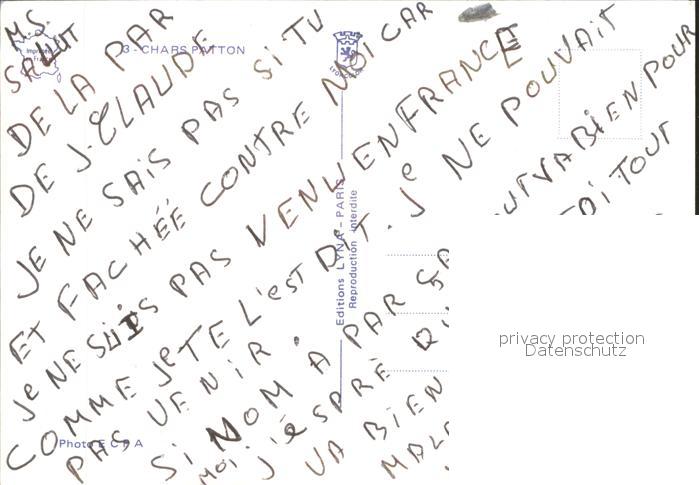 M.S.
SALUT
DE LA PAR
DE J-CLAUDE
JE NE SAIS PAS SI TU
ET FACHÉE CONTRE MOI CAR
Je NE SUIS PAS VENU EN FRANCE
COMME Je TE L'EST DIT. Je NE POUVAIT
PAS VENIR.
SI NOM A PAR SA
TOUT VA BIEN POUR
MOI, J'ESPRÈ QU
TOI TOUT
VA BIEN
MALG
3 - CHARS PATTON
Imprimé
en France
Editions LYNA - PARIS
Reproduction interdite
Photo E C P A
privacy protection
Datenschutz